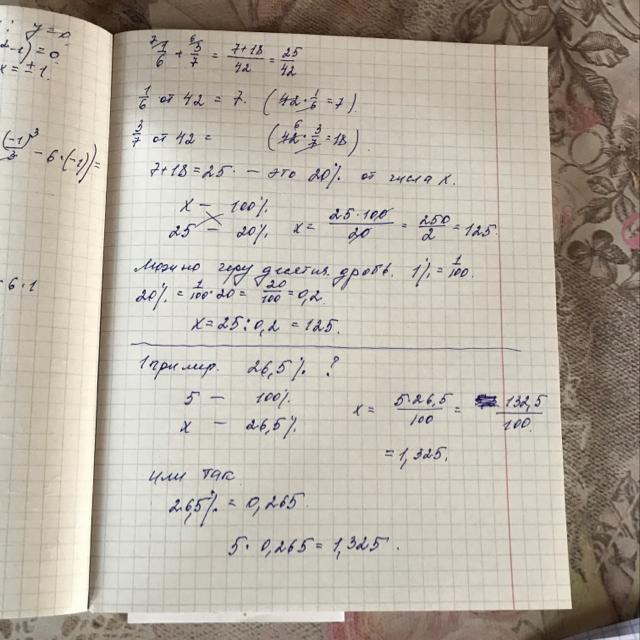 y = 0
-1) = 0
x = ± 1
(-1)³/3 - 6·(-1)) =
· 6 · 1
1/6 + 3/7 = (7+18)/42 = 25/42
1/6 от 42 = 7. (42 · 1/6 = 7)
3/7 от 42 = (42 · 3/7 = 18)
7+18 = 25 - это 20% от числа x.
x - 100%
25 - 20% x = (25·100)/20 = 250/2 = 125.
Можно через десятич. дробь. 1% = 1/100.
20% = 1/100 · 20 = 20/100 = 0,2
x = 25 : 0,2 = 125.
1 пример. 26,5% ?
5 - 100%
x - 26,5%
x = (5·26,5)/100 = 132,5/100
= 1,325.
или так
26,5% = 0,265.
5 · 0,265 = 1,325.